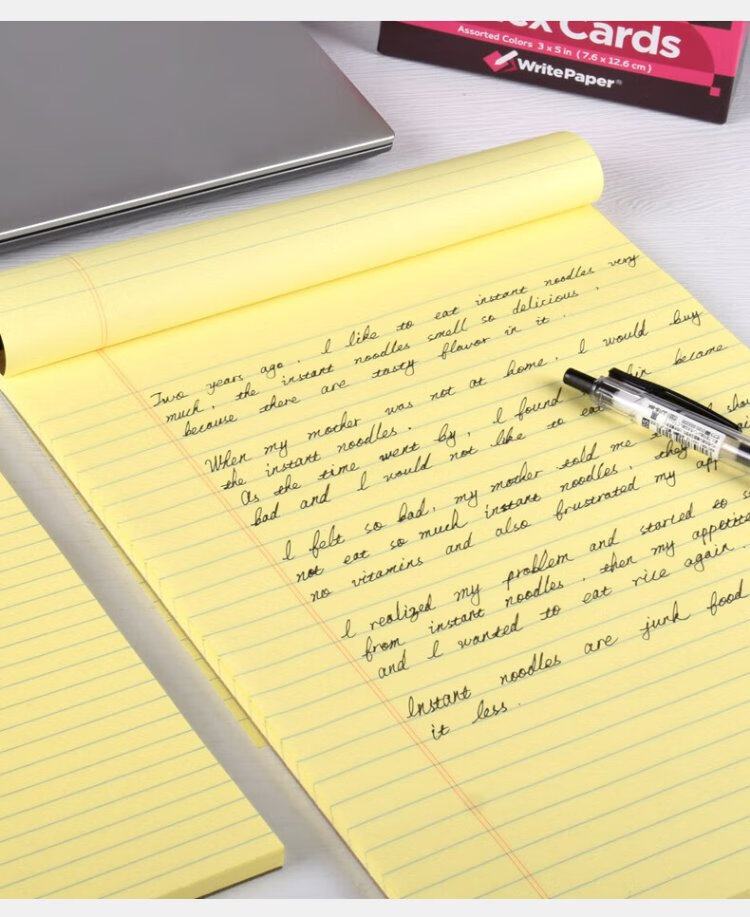 Cards
Assorted Colors 3 x 5 in (7.6 x 12.6 cm)
WritePaper®
Two years ago. I like to eat instant noodles very
much, the instant noodles smell so delicious,
because there are tasty flavor in it.
When my mother was not at home, I would buy
the instant noodles.
As the time went by, I found became
bad and I would not like to eat
I felt so bad, my mother told me
not eat so much instant noodles, they
no vitamins and also frustrated my
I realized my problem and started to
from instant noodles, then my appetite
and I wanted to eat rice again.
Instant noodles are junk food
it less.